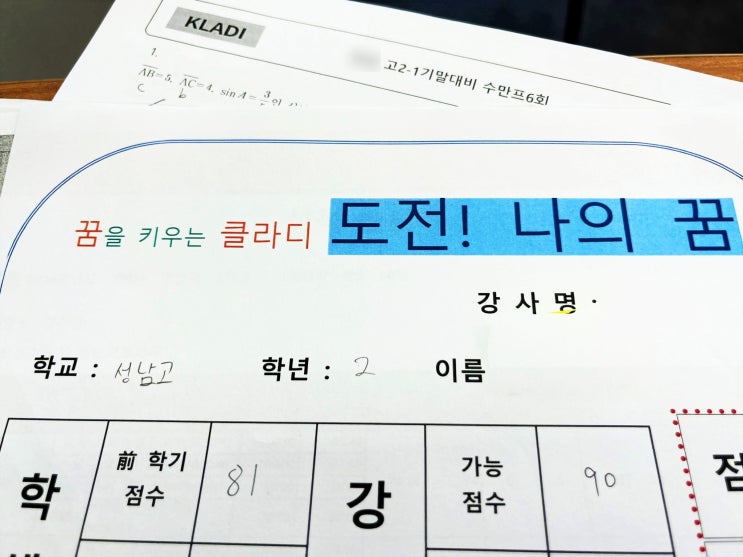 KLADI
고2-1기말대비 수만프6회
1.
AB=5, AC=4, sin A = 3
c b
꿈을 키우는 클라디 도전! 나의 꿈
강 사 명
학교 : 성남고 학년 : 2 이름
학 前 학기 점수 81 강 가능 점수 90 점